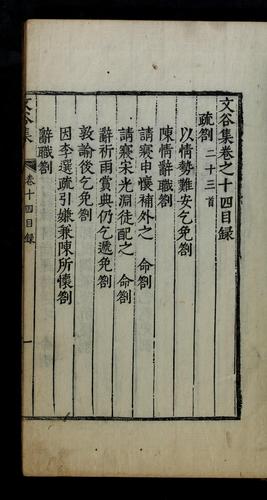 文谷集卷之十四目録
疏劄 二十三首
以情勢難安乞免劄
陳情辭職劄
請寢申懷補外之 命劄
請寢宋光淵徒配之 命劄
辭祈雨賞典仍乞遞免劄
敦諭後乞免劄
因李選疏引嫌兼陳所懷劄
辭職劄
文谷集 卷十四目録 一